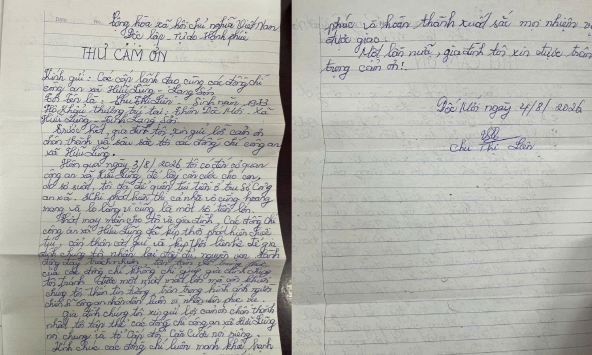 Cộng hòa xã hội chủ nghĩa Việt Nam
Độc lập - Tự do - Hạnh phúc
THƯ CẢM ƠN
Kính gửi: Các cấp lãnh đạo cùng các đồng chí
công an xã Hữu Lũng - Lạng Sơn
Tôi tên là: Chu Thị Liên - Sinh năm
Hộ khẩu thường trú tại: Thôn Dốc Mới - Xã
Hữu Lũng - tỉnh Lạng Sơn
Trước hết, gia đình tôi xin gửi lời cảm ơn
chân thành và sâu sắc tới các đồng chí công an
xã Hữu Lũng.
Hôm qua ngày 3/8/2026 tôi có đến cơ quan
công an xã Hữu Lũng để lấy căn cước cho con,
do sơ suất, tôi đã để quên túi tiền ở trụ sở Công
an xã. Khi phát hiện thì cả nhà vô cùng hoang
mang và lo lắng vì cũng là một số tiền lớn.
Thật may mắn cho tôi và gia đình, các đồng chí
công an xã Hữu Lũng đã kịp thời phát hiện chiếc
túi, cẩn thận cất giữ và kịp thời liên hệ để gia
đình chúng tôi nhận lại đầy đủ, nguyên vẹn. Hành
động đầy trách nhiệm,
của các đồng chí không chỉ giúp gia đình chúng
tôi tránh được một mất mát lớn mà còn khiến
chúng tôi thêm tin tưởng, trân trọng hình ảnh người
chiến sĩ công an nhân dân luôn vì nhân dân phục vụ.
Gia đình chúng tôi xin gửi lời cảm ơn chân thành
nhất tới tập thể các đồng chí công an xã Hữu Lũng
nói chung và tổ cấp Căn Cước nói riêng.
Kính chúc các đồng chí luôn mạnh khỏe, hạnh
phúc và hoàn thành xuất sắc mọi nhiệm vụ
được giao.
Một lần nữa, gia đình tôi xin được trân
trọng cảm ơn!
Dốc Mới ngày 4/8/2026
Chu Thị Liên